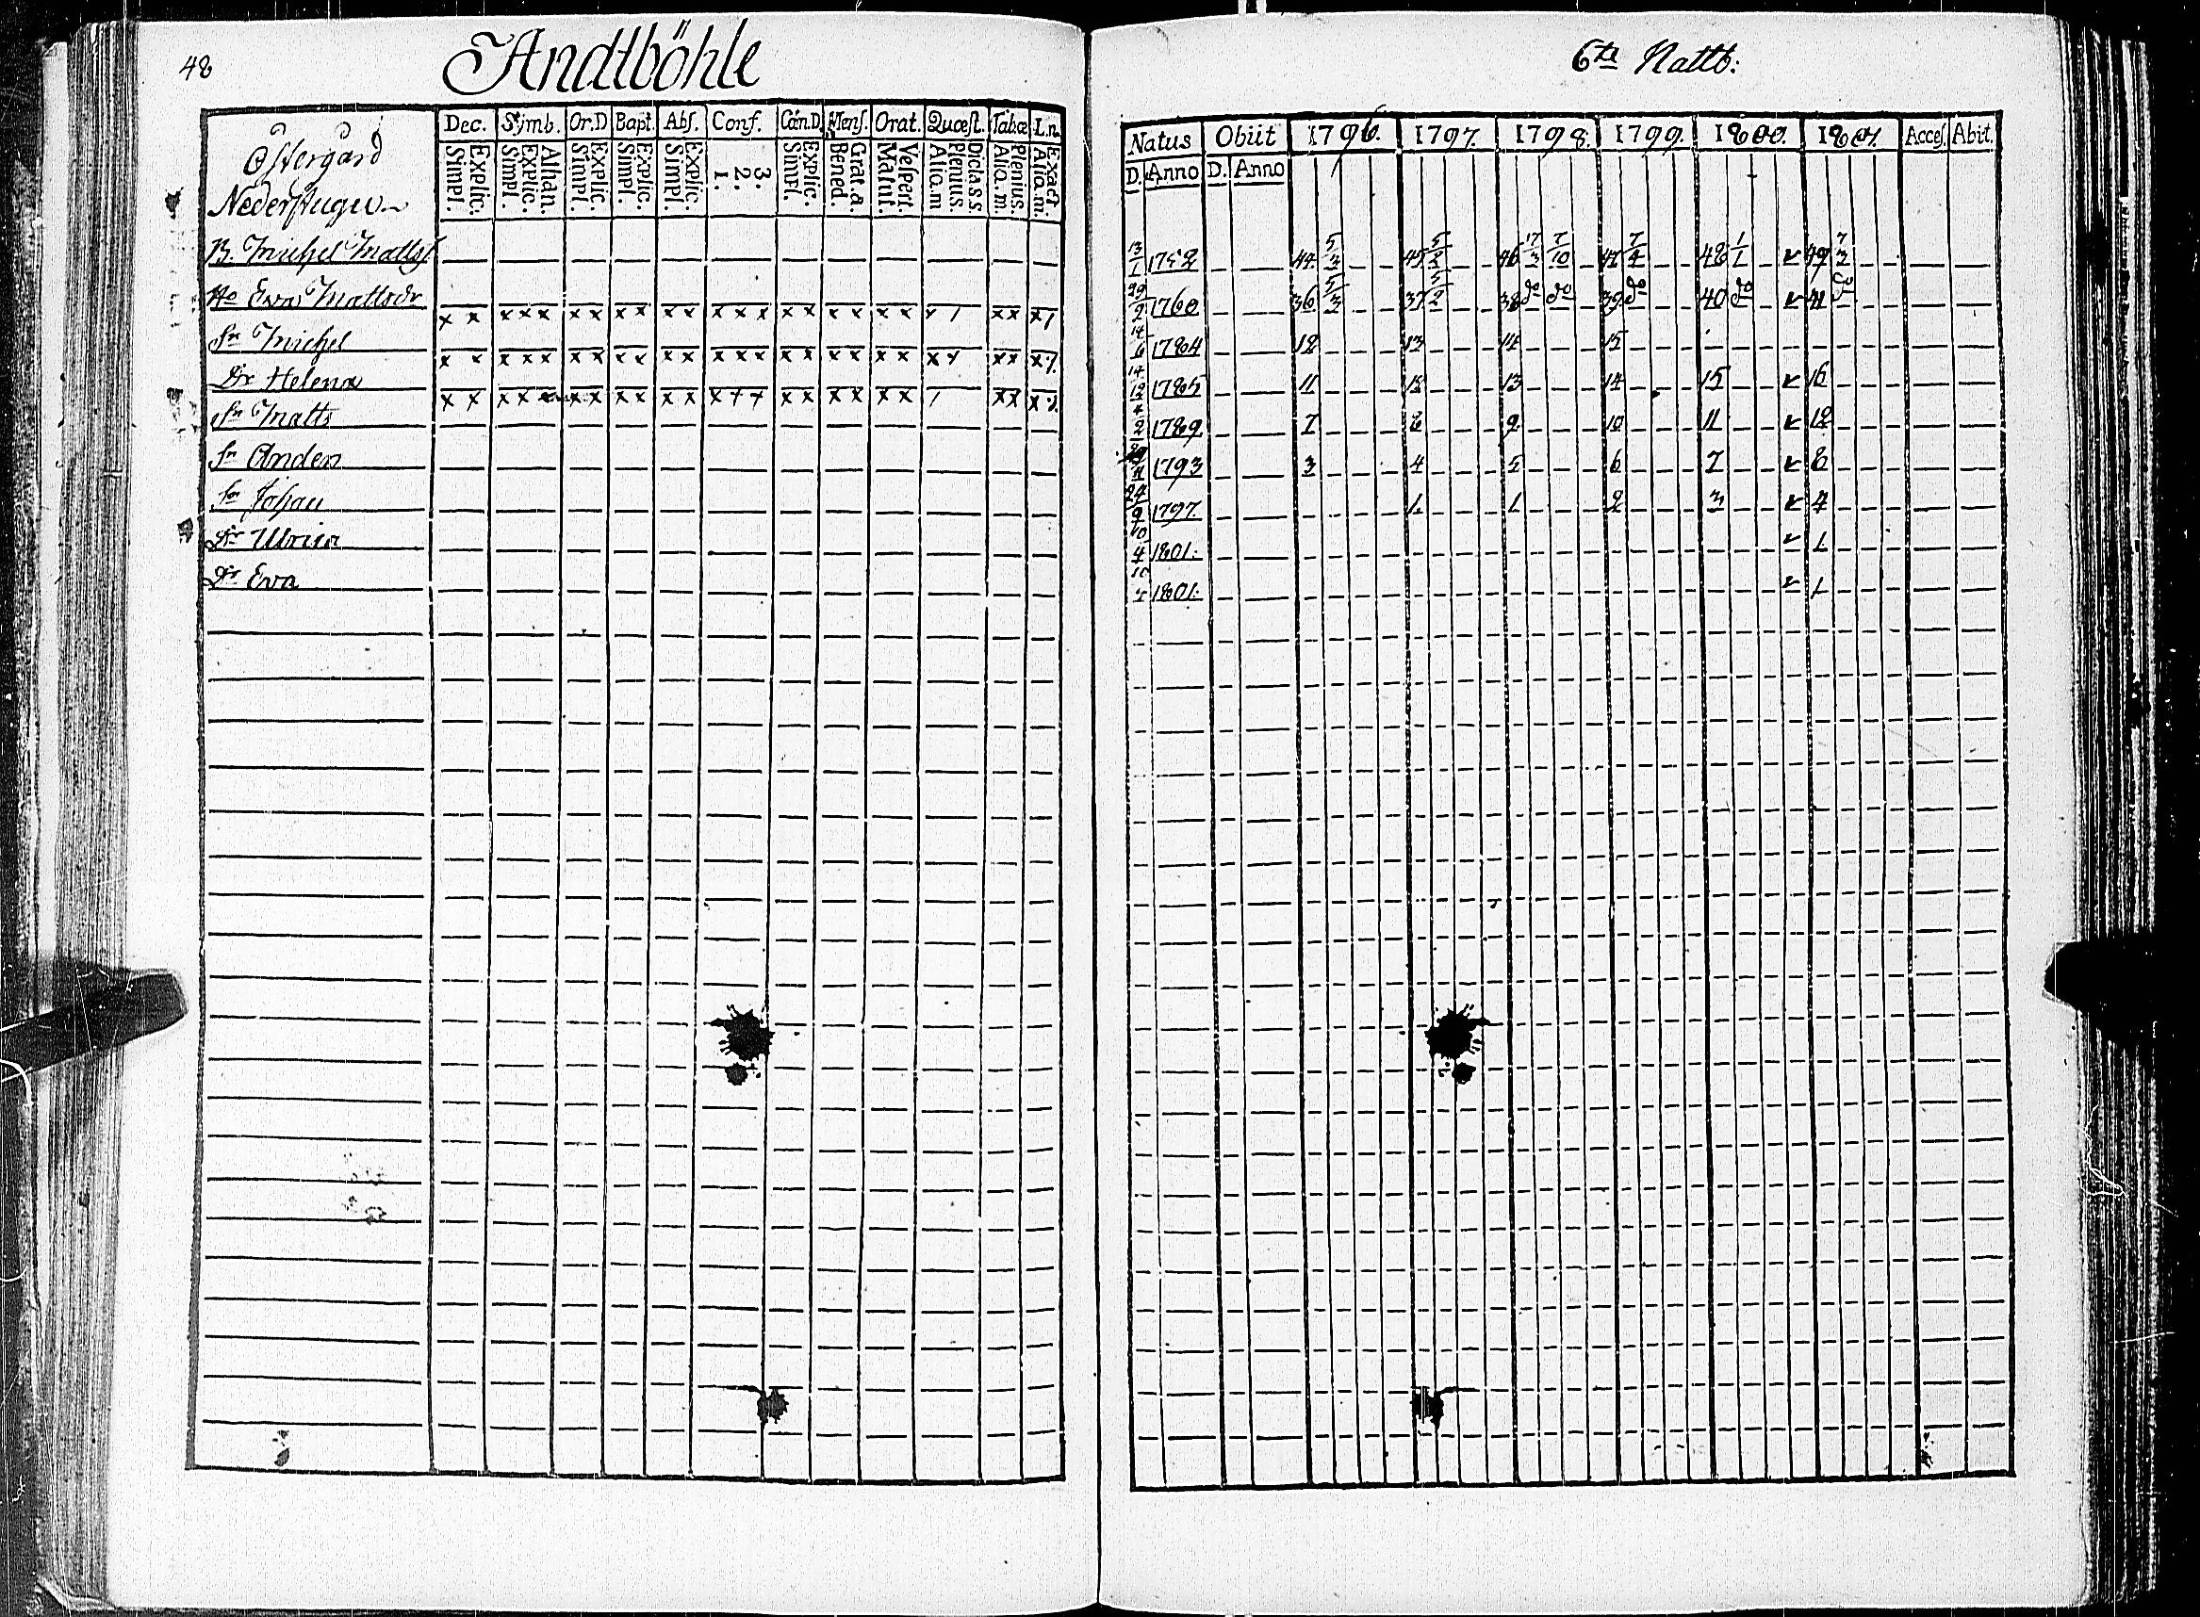 48
Andtböhle
6te Nattb:
Östergård
Nederstugu
Dec. Sÿmb. Or.D Bapt. Abs. Conf. Can.D. Mens. Orat. Quæst. Tabæ L.n.
Simpl. Explic. Simpl. Explic. Athan. Simpl. Explic. Simpl. Explic. Simpl. Explic. 1. 2. 3. Simpl. Explic. Bened. Grat.a. Matut. Vespert. Alio.m Plenius. Dicta s.s. Alio.m. Plenius. Alio.m. Exact
Natus Obiit 1796. 1797. 1798. 1799. 1800. 1801. Acces. Abit.
D. Anno D. Anno
B. Michel Matts. 13/1 1752 44 5/3 45 5/2 46 17/3 7/10 47 7/4 48 1/1 v 49 7/2
Ho Eva Mattsdr 29/2 1760 36 5/3 37 5/2 38 do do 39 do 40 do v 41 do
x x x x x x x x x x x x x x x x x x x x x / x x x /
Sn Michel 14/6 1784 12 13 14 15
x x x x x x x x x x x x x x x x x x x x x x x x x
Dr Helena 14/12 1785 11 12 13 14 15 v 16
x x x x x x x x x x x x x x x x x x / x x x
Sn Matts 4/2 1789 7 8 9 10 11 v 12
Sn Anders 1793 3 4 5 6 7 v 8
Sn Johan 24/9 1797. 1. 1 2 3 v 4
Dr Ulrica 10/4 1801. v 1.
Dr Eva 10/4 1801. v 1